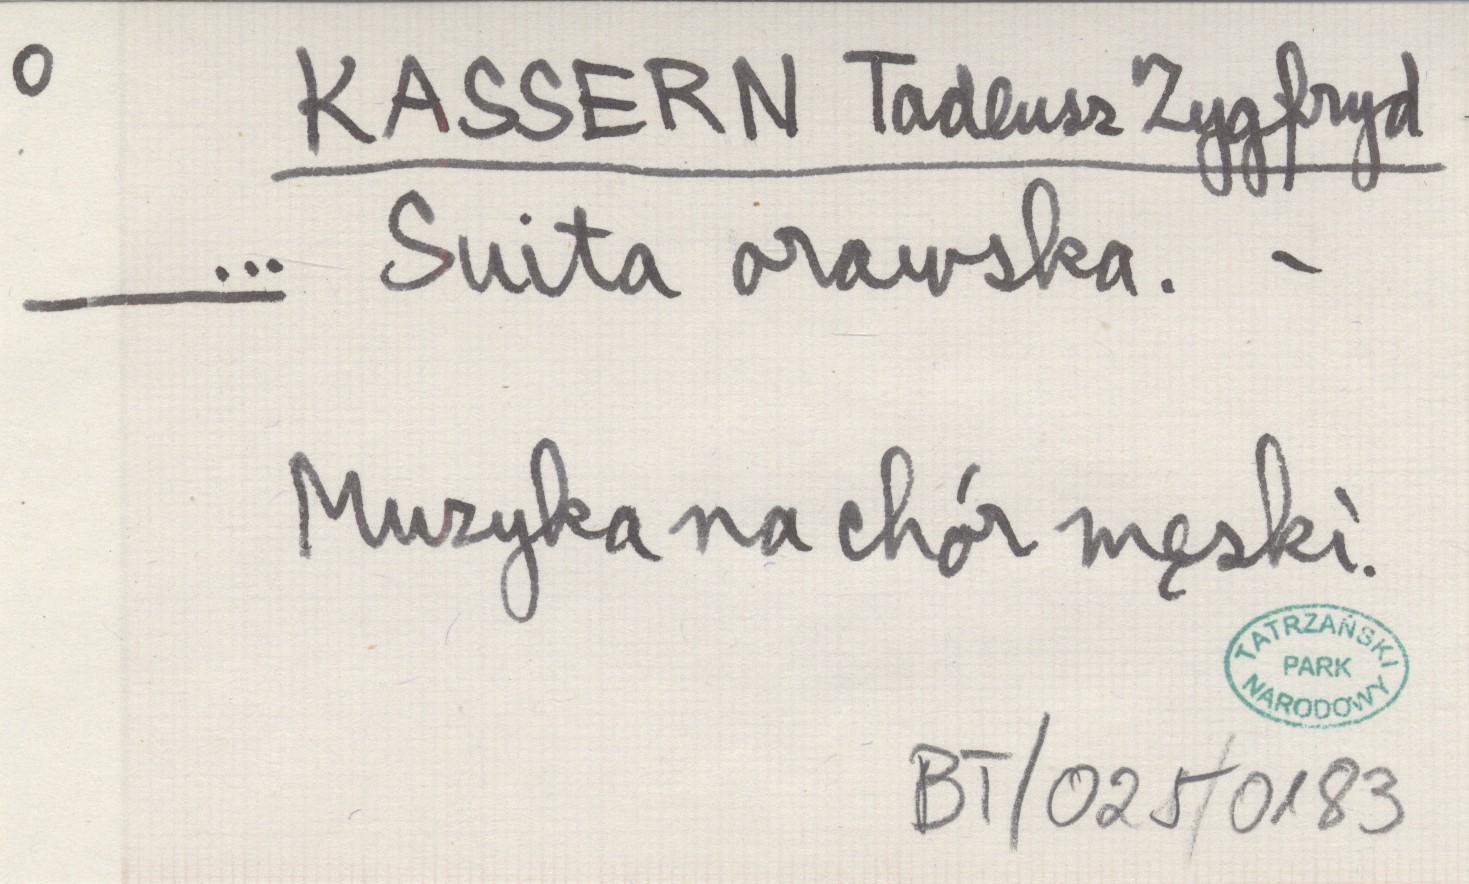 o KASSERN Tadeusz Zygfryd
... Suita orawska. -
Muzyka na chór męski.
TATRZAŃSKI
PARK
NARODOWY
BT/025/0183